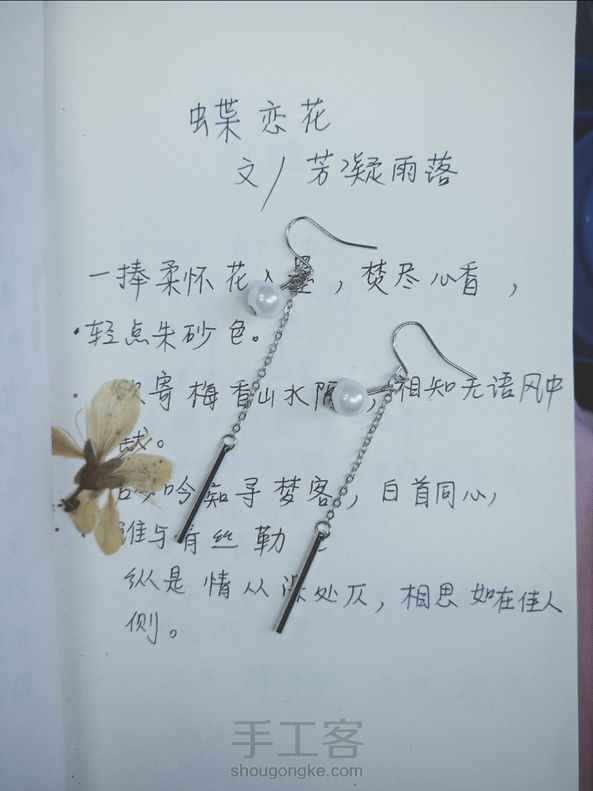 蝶恋花
文/芳凝雨落
一捧柔怀花，焚尽心香，
轻点朱砂色。
寄梅香山水隔，相知无语风中
吟痴寻梦客，白首同心，
谁与青丝勒
纵是情从深处仄，相思如在佳人
侧。
手工客
shougongke.com